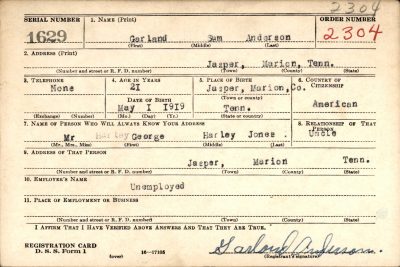 2304
SERIAL NUMBER 1. NAME (Print) ORDER NUMBER
1629 Garland Sam Anderson 2304
(First) (Middle) (Last)
2. ADDRESS (Print)
Jasper, Marion, Tenn.
(Number and street or R. F. D. number) (Town) (County) (State)
3. TELEPHONE 4. AGE IN YEARS 5. PLACE OF BIRTH 6. COUNTRY OF CITIZENSHIP
None 21 Jasper, Marion, Co.
DATE OF BIRTH (Town or county)
May 1 1919 Tenn. American
(Exchange) (Number) (Mo.) (Day) (Yr.) (State or country)
7. NAME OF PERSON WHO WILL ALWAYS KNOW YOUR ADDRESS 8. RELATIONSHIP OF THAT PERSON
Mr George Harley Jones. Uncle
(Mr., Mrs., Miss) (First) (Middle) (Last)
9. ADDRESS OF THAT PERSON
Jasper, Marion Tenn.
(Number and street or R. F. D. number) (Town) (County) (State)
10. EMPLOYER'S NAME
Unemployed
11. PLACE OF EMPLOYMENT OR BUSINESS
(Number and street or R. F. D. number) (Town) (County) (State)
I AFFIRM THAT I HAVE VERIFIED ABOVE ANSWERS AND THAT THEY ARE TRUE.
REGISTRATION CARD
D. S. S. Form 1 (over) 16—17105 Garland Anderson.
(Registrant's signature)